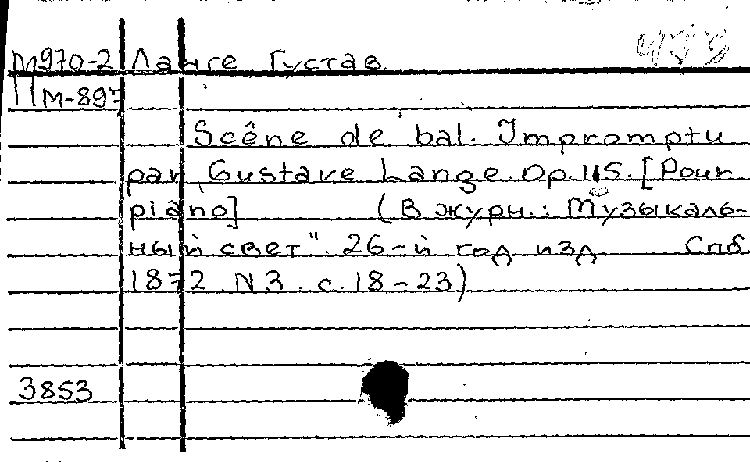 М970-2 Ланге Густав
М-897
Scêne de bal. Impromptu
par Gustave Lange. Op. 115. [Pour
piano] (В журн.: Музыкаль-
ный свет". 26-й год изд Спб
1872. N3. с. 18-23)
3853